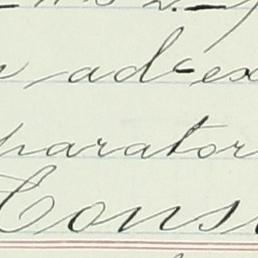 ad-ex
parator
Const